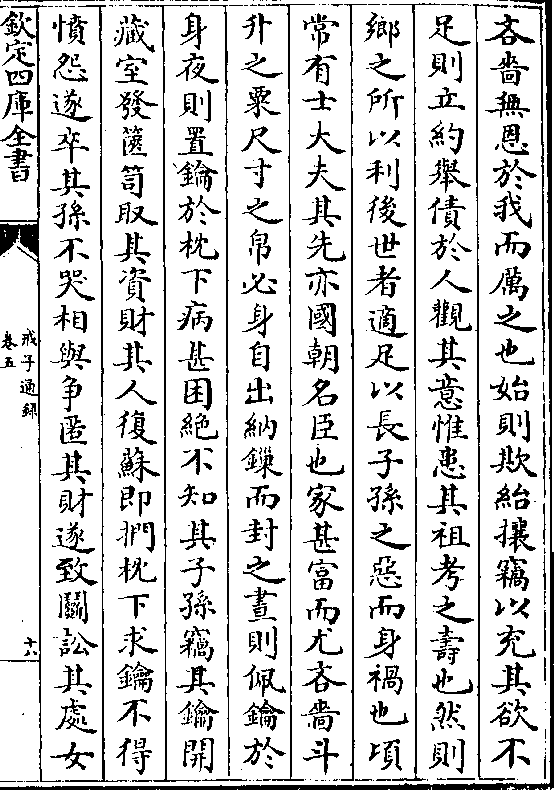 吝嗇無恩於我而厲之也始則欺紿攘竊以充其欲不
足則立約舉債於人觀其意惟患其祖考之壽也然則
鄉之所以利後世者適足以長子孫之惡而身禍也頃
常有士大夫其先亦國朝名臣也家甚富而尤吝嗇斗
升之粟尺寸之帛必身自出納鏁而封之晝則佩鑰於
身夜則置鑰於枕下病甚困絶不知其子孫竊其鑰開
藏室發篋笥取其資財其人復蘇即捫枕下求鑰不得
憤怨遂卒其孫不哭相與争匿其財遂致鬭訟其處女
欽定四庫全書
戒子通録
卷五
十六